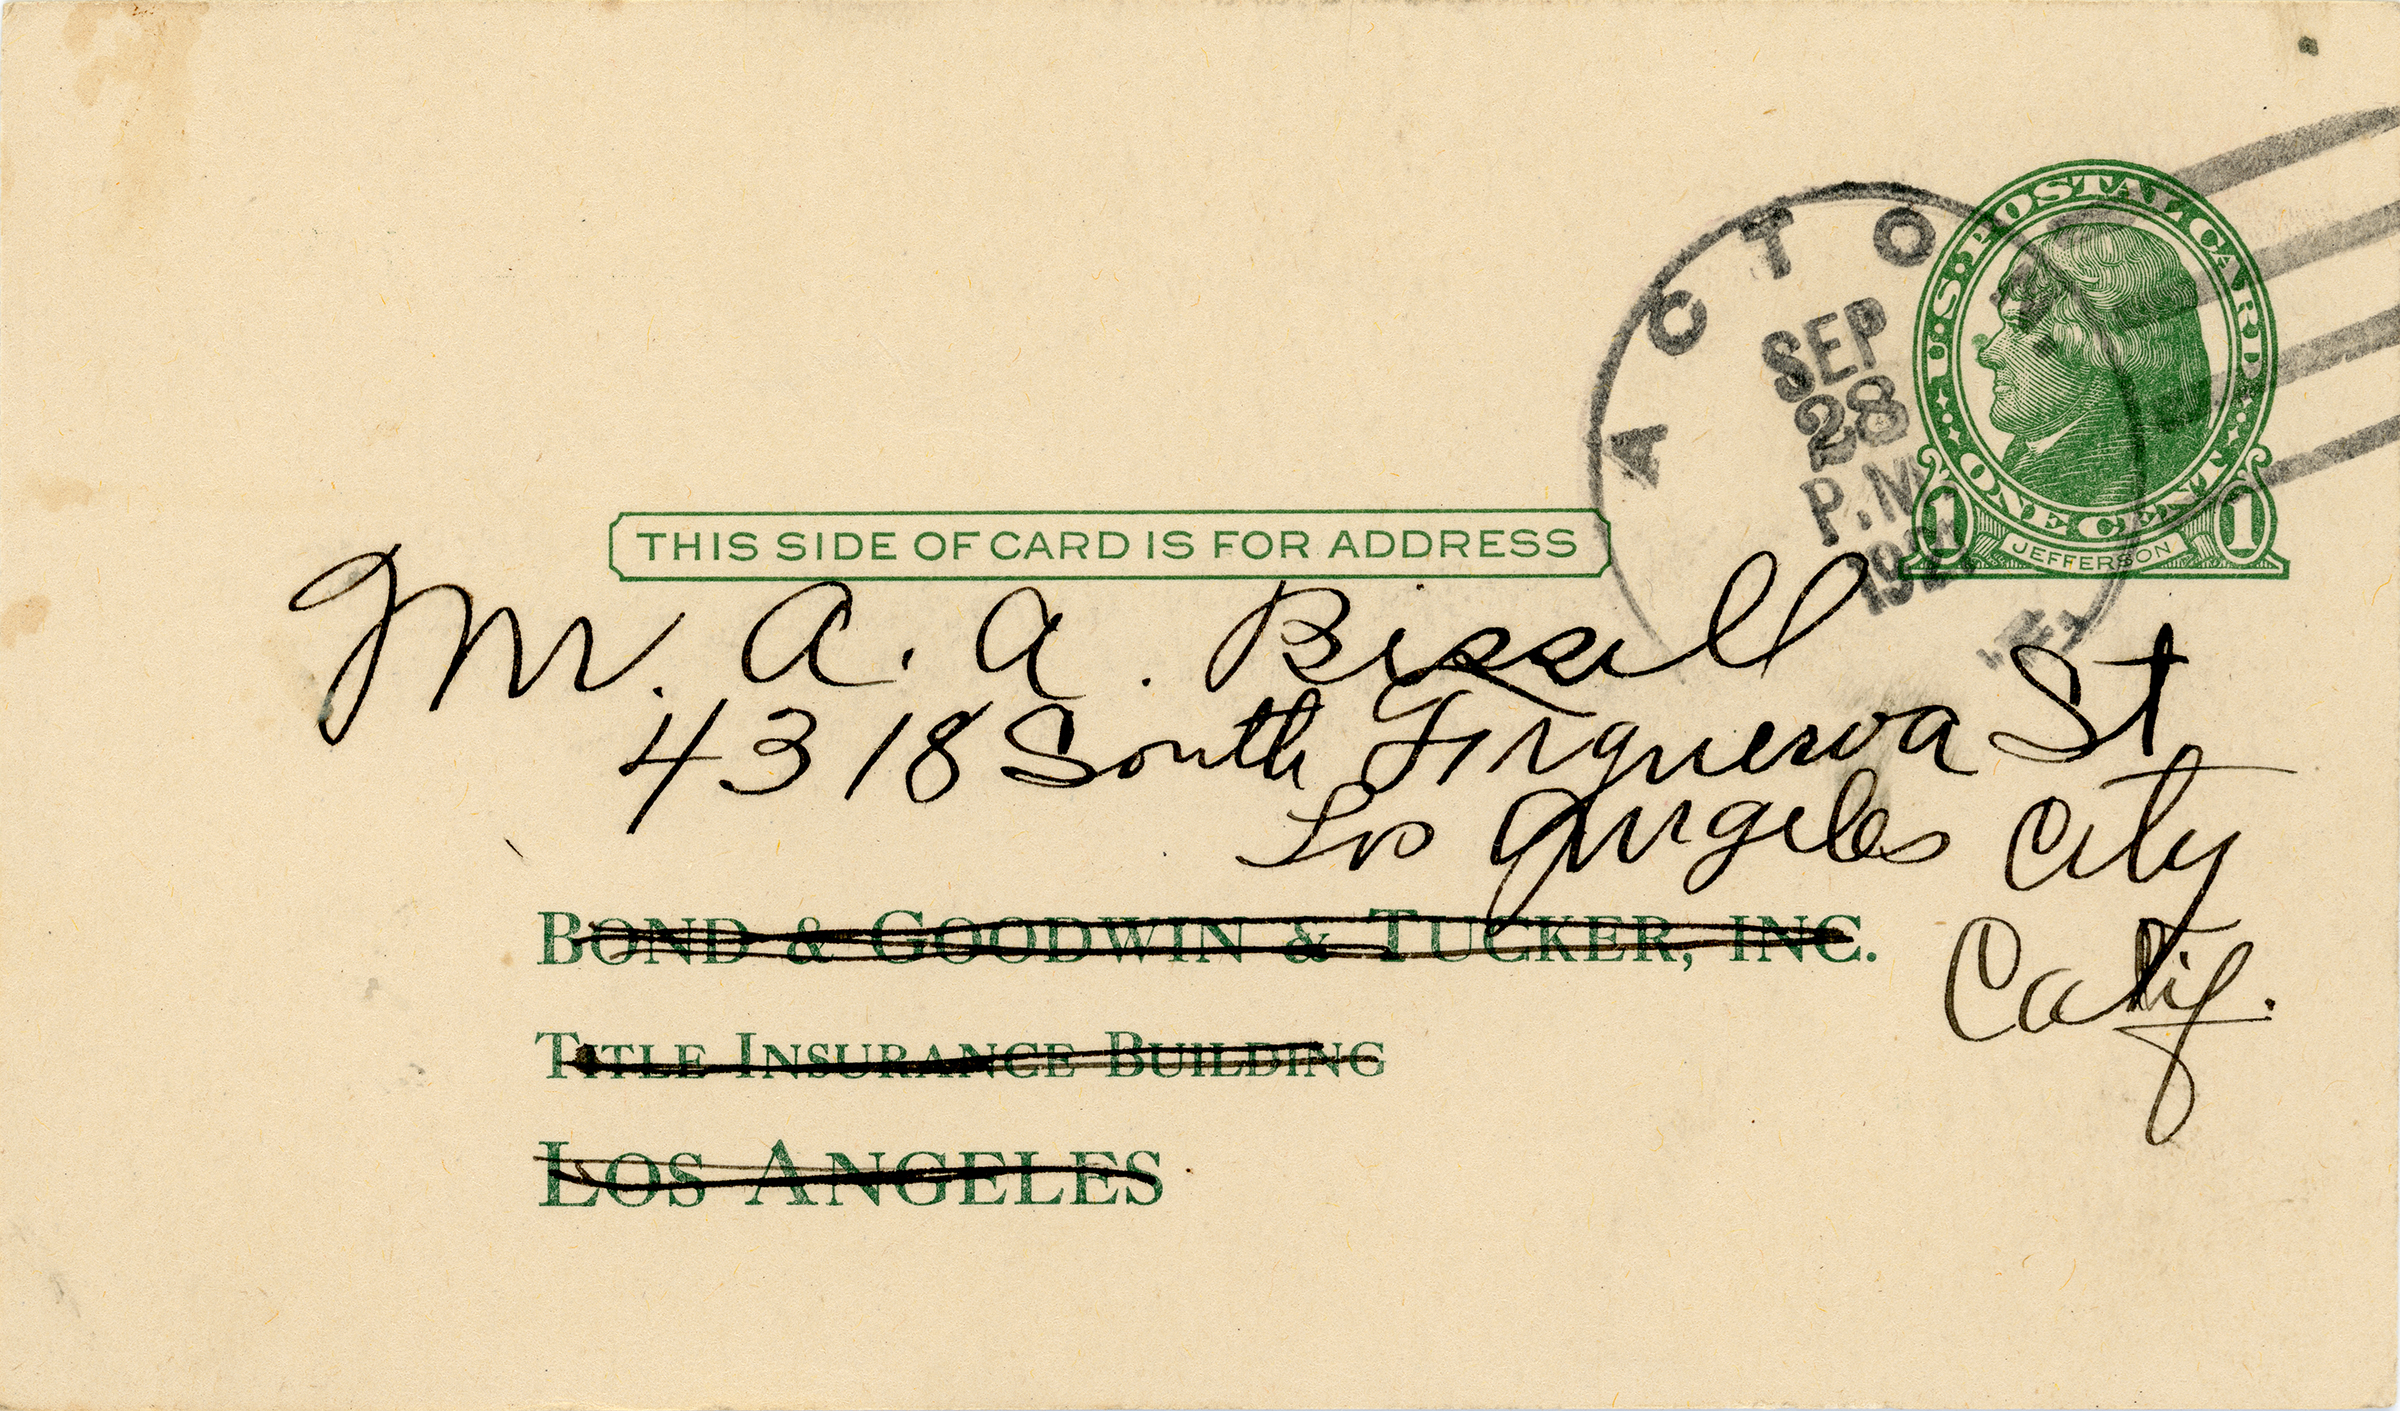 U.S. POSTAL CARD
ONE CENT
1 1
JEFFERSON
ACTON
SEP
28
P.M.
THIS SIDE OF CARD IS FOR ADDRESS
Mr. A. A. Bissell
4318 South Firguerva St
Los Angeles City
Calif.
BOND & GOODWIN & TUCKER, INC.
TITLE INSURANCE BUILDING
LOS ANGELES